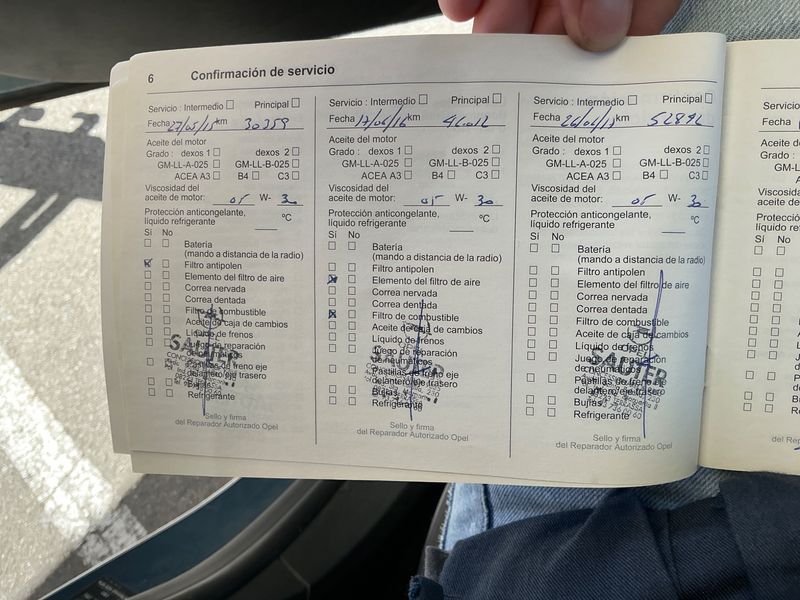 6 Confirmación de servicio
Servicio : Intermedio Principal
Fecha 27/05/15 km 30359
Aceite del motor
Grado : dexos 1 dexos 2
GM-LL-A-025 GM-LL-B-025
ACEA A3 B4 C3
Viscosidad del
aceite de motor: 05 W- 30
Protección anticongelante,
líquido refrigerante °C
Sí No
Batería
(mando a distancia de la radio)
Filtro antipolen
Elemento del filtro de aire
Correa nervada
Correa dentada
Filtro de combustible
Aceite de caja de cambios
Líquido de frenos
Juego de reparación
de neumáticos
Pastillas de freno eje
delantero/eje trasero
Bujías
Refrigerante
SAUTER
Sello y firma
del Reparador Autorizado Opel
Servicio : Intermedio Principal
Fecha 17/06/16 km
Aceite del motor
Grado : dexos 1 dexos 2
GM-LL-A-025 GM-LL-B-025
ACEA A3 B4 C3
Viscosidad del
aceite de motor: 05 W- 30
Protección anticongelante,
líquido refrigerante °C
Sí No
Batería
(mando a distancia de la radio)
Filtro antipolen
Elemento del filtro de aire
Correa nervada
Correa dentada
Filtro de combustible
Aceite de caja de cambios
Líquido de frenos
Juego de reparación
de neumáticos
Pastillas de freno eje
delantero/eje trasero
Bujías
Refrigerante
SAUTER
Sello y firma
del Reparador Autorizado Opel
Servicio : Intermedio Principal
Fecha km
Aceite del motor
Grado : dexos 1 dexos 2
GM-LL-A-025 GM-LL-B-025
ACEA A3 B4 C3
Viscosidad del
aceite de motor: 05 W- 30
Protección anticongelante,
líquido refrigerante °C
Sí No
Batería
(mando a distancia de la radio)
Filtro antipolen
Elemento del filtro de aire
Correa nervada
Correa dentada
Filtro de combustible
Aceite de caja de cambios
Líquido de frenos
Juego de reparación
de neumáticos
Pastillas de freno eje
delantero/eje trasero
Bujías
Refrigerante
SAUTER
Sello y firma
del Reparador Autorizado Opel
Fecha
Aceite del
Sí No